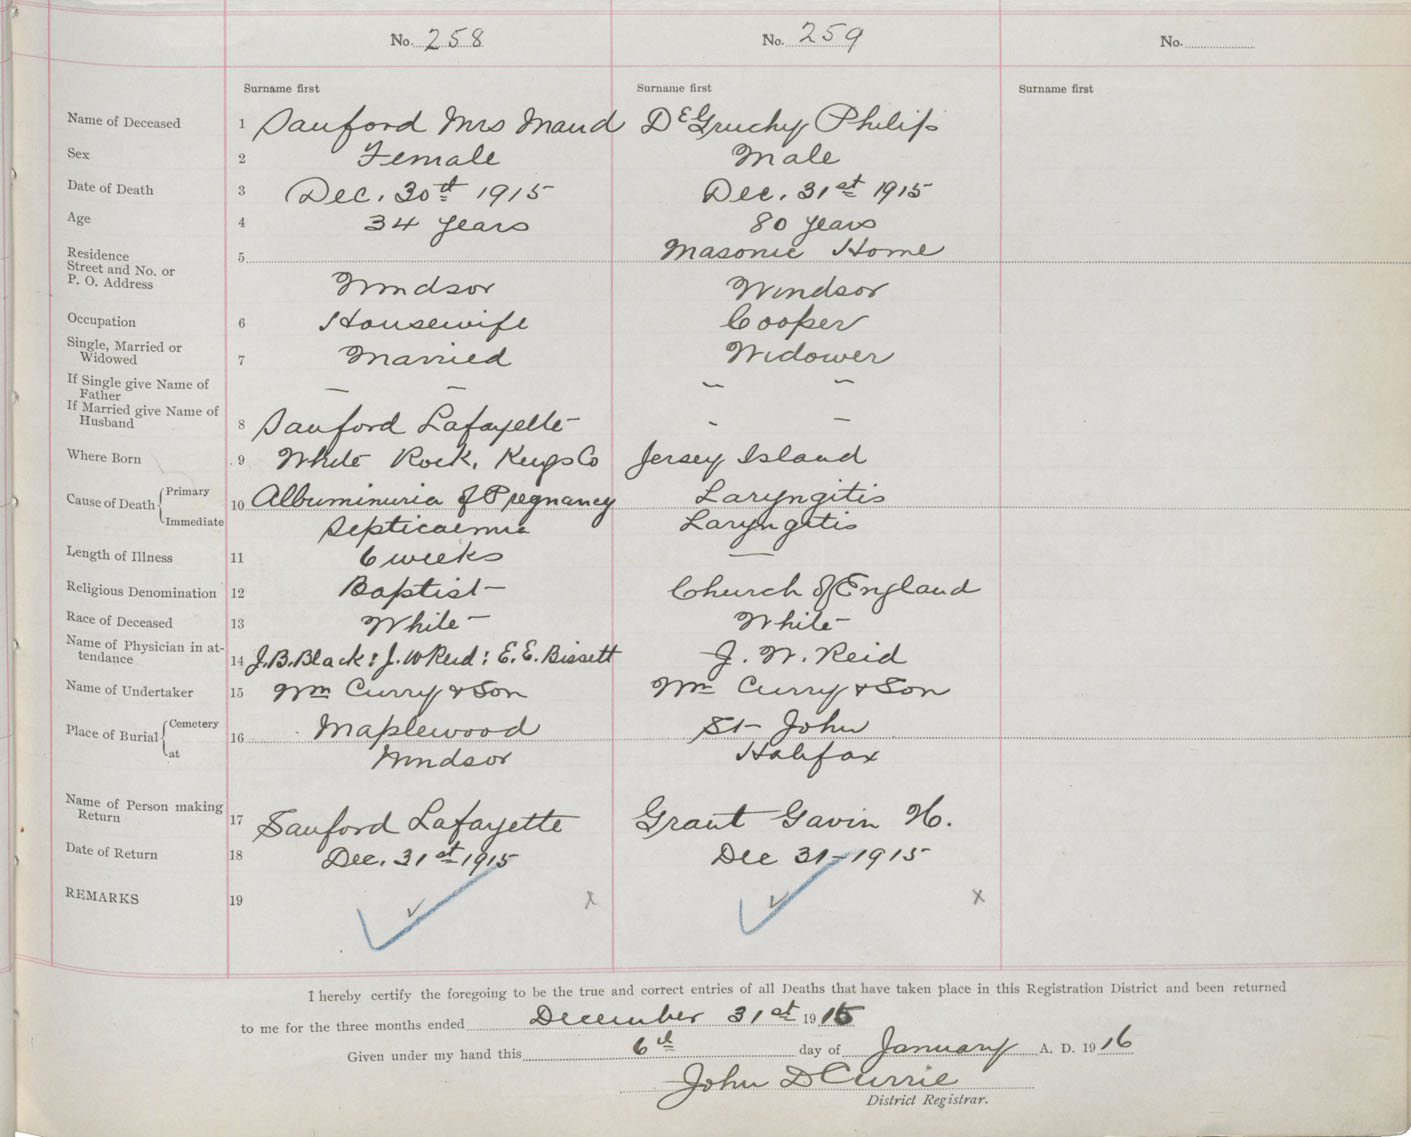 No. 258 No. 259 No.
Surname first Surname first Surname first
Name of Deceased 1 Sanford Mrs Maud DeGruchy Philip
Sex 2 Female Male
Date of Death 3 Dec. 30th 1915 Dec. 31st 1915
Age 4 34 years 80 years
Residence 5 Masonic Home
Street and No. or
P. O. Address Windsor Windsor
Occupation 6 Housewife Cooper
Single, Married or
Widowed 7 Married Widower
If Single give Name of
Father — — — —
If Married give Name of
Husband 8 Sanford Lafayette - —
Where Born 9 White Rock, Kings Co Jersey Island
Cause of Death Primary 10 Albuminuria of Pregnancy Laryngitis
Immediate Septicaemia Laryngitis
Length of Illness 11 6 weeks —
Religious Denomination 12 Baptist Church of England
Race of Deceased 13 White White
Name of Physician in at-
tendance 14 J.B. Black: J.W Reid: E.E. Bissett J. W. Reid
Name of Undertaker 15 Wm Curry & Son Wm Curry & Son
Place of Burial Cemetery 16 Maplewood St John
at Windsor Halifax
Name of Person making
Return 17 Sanford Lafayette Grant Gavin H.
Date of Return 18 Dec. 31st 1915 Dec 31-1915
REMARKS 19 ✓ x ✓ x
I hereby certify the foregoing to be the true and correct entries of all Deaths that have taken place in this Registration District and been returned
to me for the three months ended December 31st 1915
Given under my hand this 6th day of January A. D. 1916
John D Currie
District Registrar.